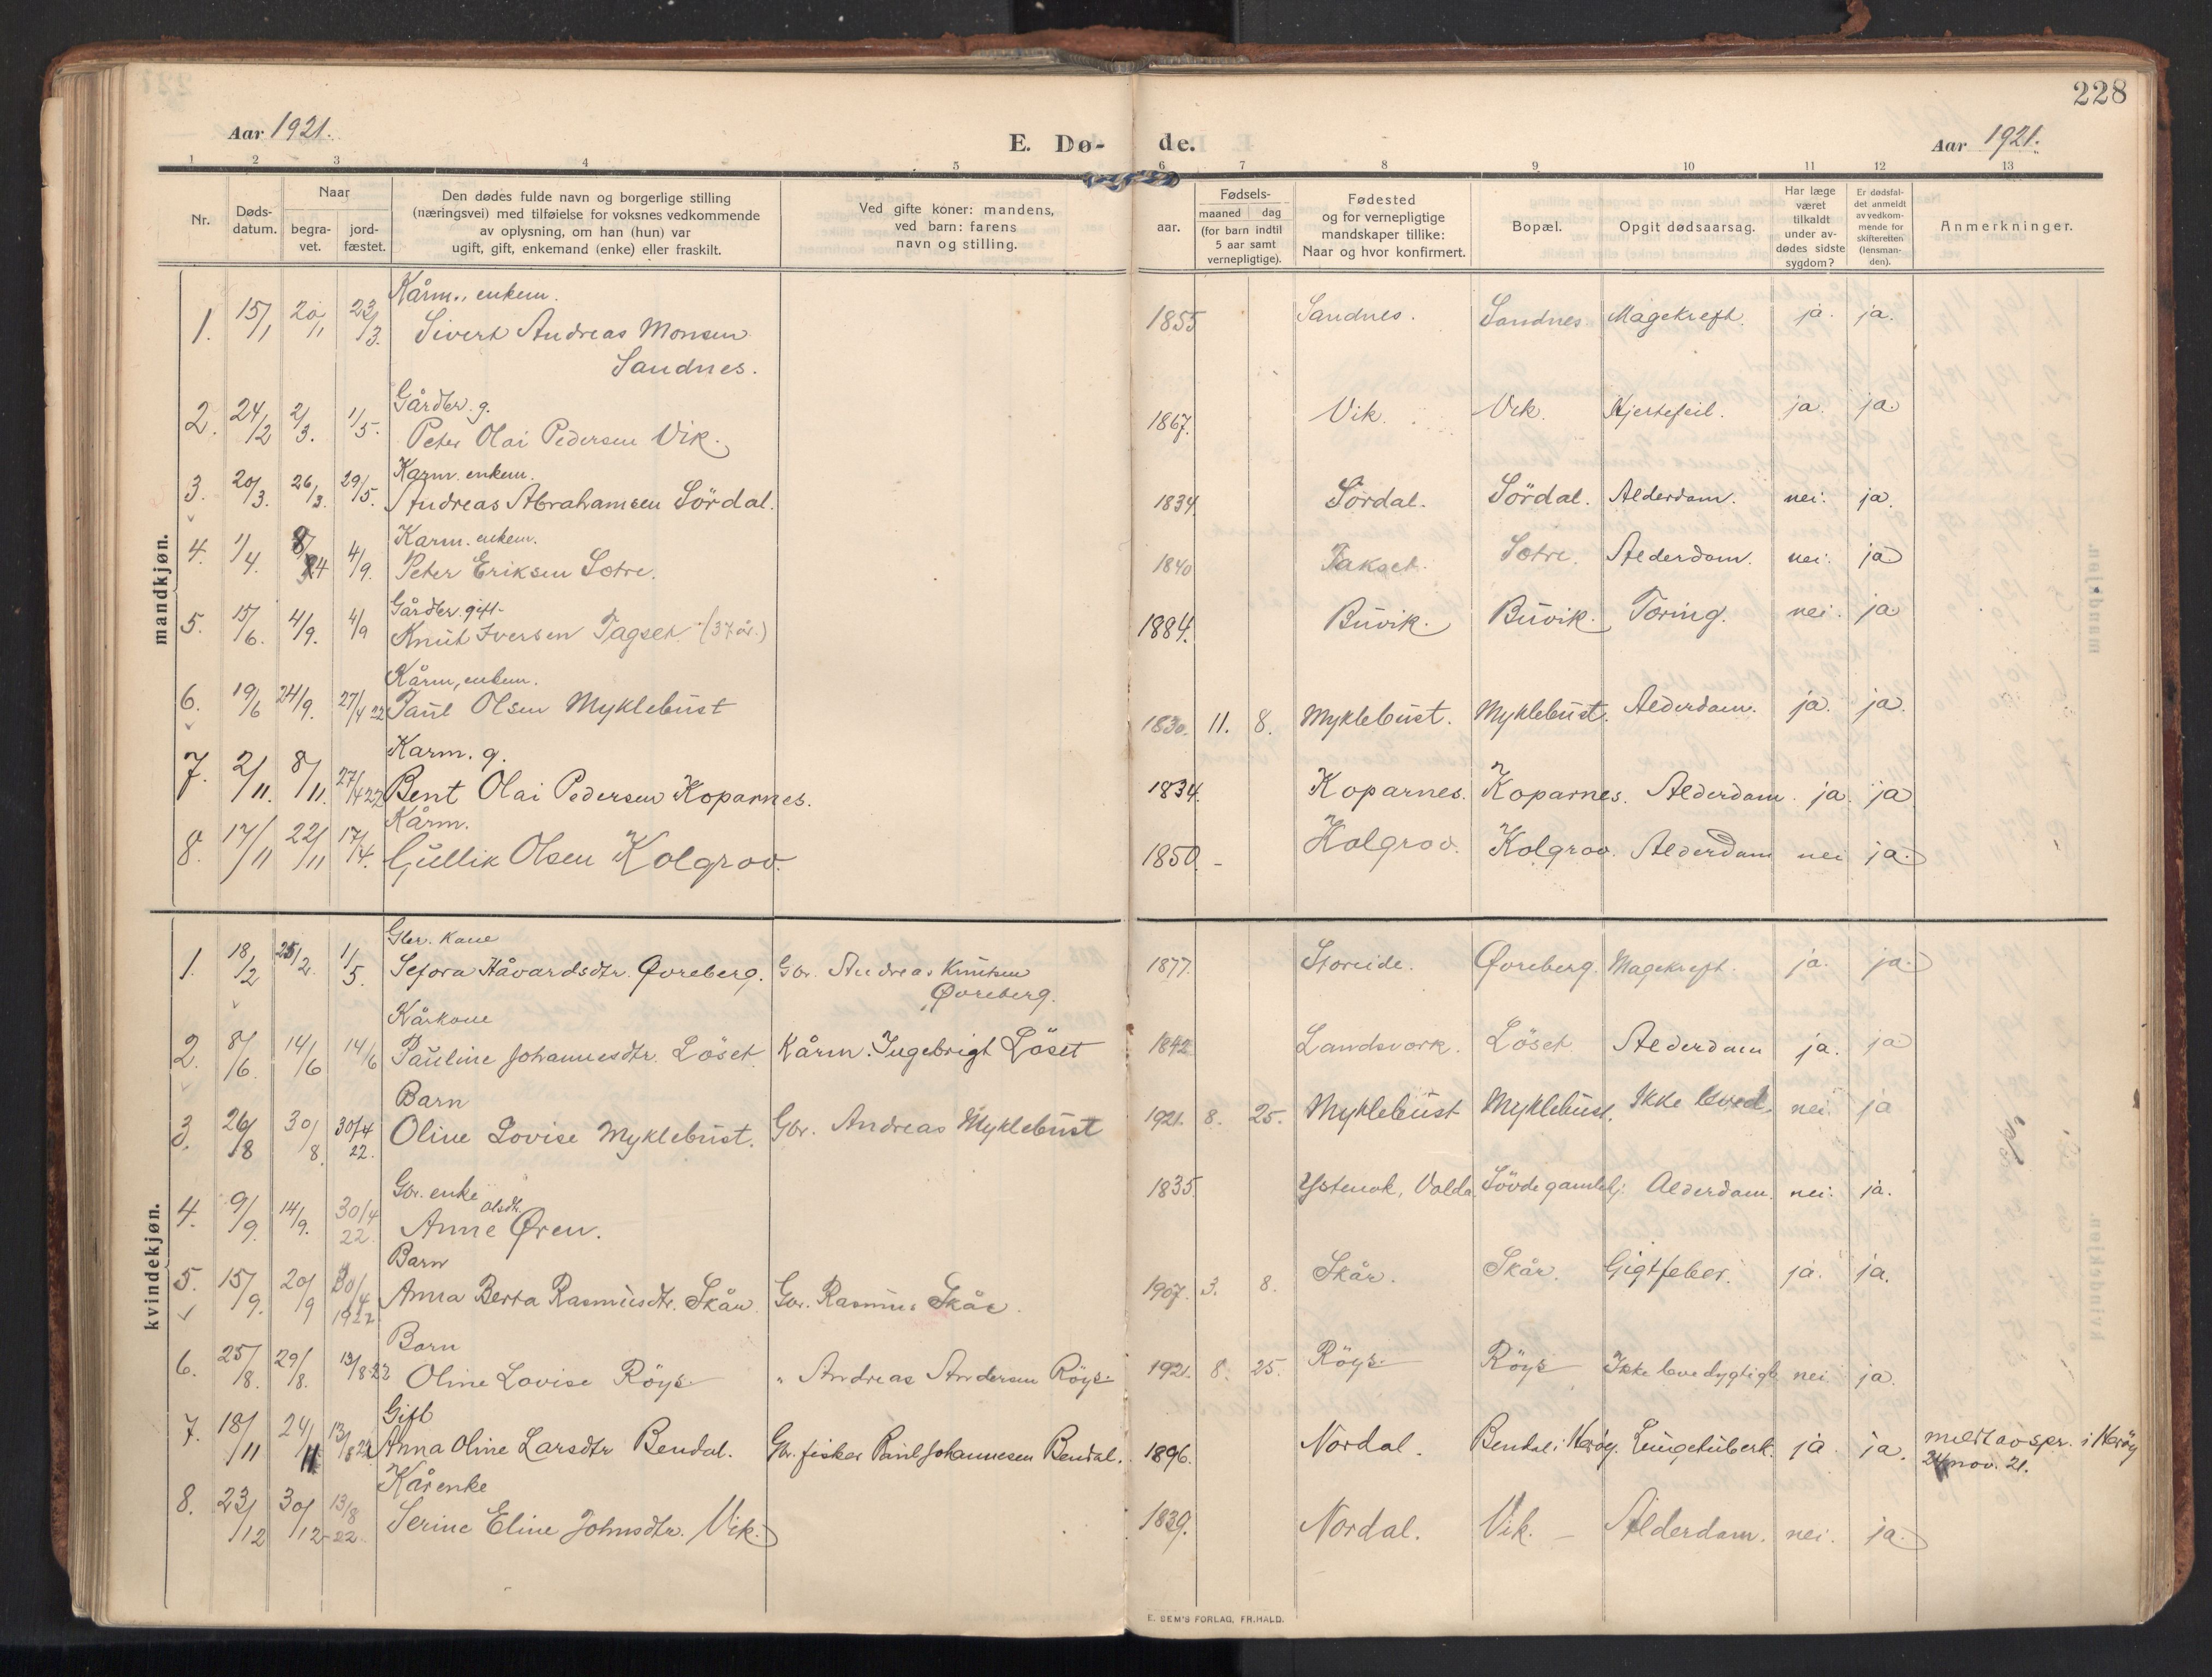 228
Aar 1921.
E. Dø-
de.
Aar 1921.
1 2 3 4 5 6 7 8 9 10 11 12 13
Nr.
Døds-
datum.
Naar
begra-
vet.
jord-
fæstet.
Den dødes fulde navn og borgerlige stilling
(næringsvei) med tilføielse for voksnes vedkommende
av oplysning, om han (hun) var
ugift, gift, enkemand (enke) eller fraskilt.
Ved gifte koner: mandens,
ved barn: farens
navn og stilling.
aar.
Fødsels-
maaned dag
(for barn indtil
5 aar samt
vernepligtige).
Fødested
og for vernepligtige
mandskaper tillike:
Naar og hvor konfirmert.
Bopæl.
Opgit dødsaarsag.
Har læge
været
tilkaldt
under av-
dødes sidste
sygdom?
Er dødsfal-
det anmeldt
av vedkom-
mende for
skifteretten
(lensman-
den).
Anmerkninger.
mandkjøn.
Kårm., enkem.
1. 15/1 20/1 23/3. Sivert Andreas Monsen 1855 Sandnes. Sandnes. Magekreft. ja. ja.
Sandnes.
Gårdbr. g.
2. 24/2 2/3. 1/5. Peter Olai Pedersen Vik. 1867. Vik. Vik. Hjertefeil. ja. ja.
Karm. enkem.
3. 20/3. 26/3. 29/5. Andreas Abrahamsen Sördal. 1834. Sördal. Sördal. Alderdom. nei. ja.
Karm. enkem.
4. 1/4. 8/4 4/9. Peter Eriksen Sætre. 1840 Takset. Sætre. Alderdom. nei. ja
Gårdbr. gift-
5. 15/6. 4/9. 4/9 Knut Iversen Tagset. (37 år.) 1884. Buvik. Buvik. Tæring. nei. ja
Kårm, enkem.
6. 19/6 24/9. 27/4 22 Paul Olsen Myklebust 1830. 11. 8. Myklebust. Myklebust. Alderdom. ja. ja.
Karm. g.
7. 2/11. 8/11. 27/4 22 Bent Olai Pedersen Koparnes. 1834. Koparnes. Koparnes. Alderdam. ja. ja
Kårm.
8. 17/11 22/11 17/4. Gullik Olsen Kolgrov. 1850. - Kolgrov. Kolgrov. Alderdam nei ja.
kvindekjøn.
Gbr. Kone
1. 18/2 25/2. 1/5. Sefora Håvardsdtr. Øvreberg. Gbr. Andreas Knutsen 1877. Storeide. Øvreberg. Magekreft. ja. ja.
Øvreberg.
Kårkone
2. 8/6. 14/6 14/6 Pauline Johannesdtr. Löset Kårm. Ingebrigt Löset 1842 Landsverk. Löset Alderdam ja. ja
Barn
3. 26/8 30/8. 30/4 22. Oline Lovise Myklebust. Gbr. Andreas Myklebust 1921. 8. 25. Myklebust Myklebust. Ikke leved. nei. ja
Gbr. enke
Olsdtr.
4. 9/9. 14/9. 30/4 22. Anne Øren. 1835. Volda. Sövde gamlehj. Alderdom. nei. ja.
Barn
5. 15/9. 20/9 30/4 1922 Anna Berta Rasmusdtr. Skår. Gbr. Rasmus Skår. 1907. 3. 8. Skår. Skår. Gigtfeber. ja. ja.
Barn
6. 25/8. 29/8. 13/8 22 Oline Lovise Röys " Andreas Andersen Röys. 1921. 8. 25. Röys. Röys Ikke levedygtigt nei. ja.
Gift
7. 18/11 24/11 13/8 22 Anna Oline Larsdtr Bendal. Gbr. fisker Paul Johannesen Bendal. 1896. Nordal. Bendal i Herøy. Lungetuberk. ja. ja. i Herøy
24 nov. 21.
Kårenke
8. 23/12 30/12 13/8 22. Serine Eline Johnsdtr. Vik. 1839. Nordal. Vik. - Alderdom. nei. ja.
E. SEM'S FORLAG, FR.HALD.